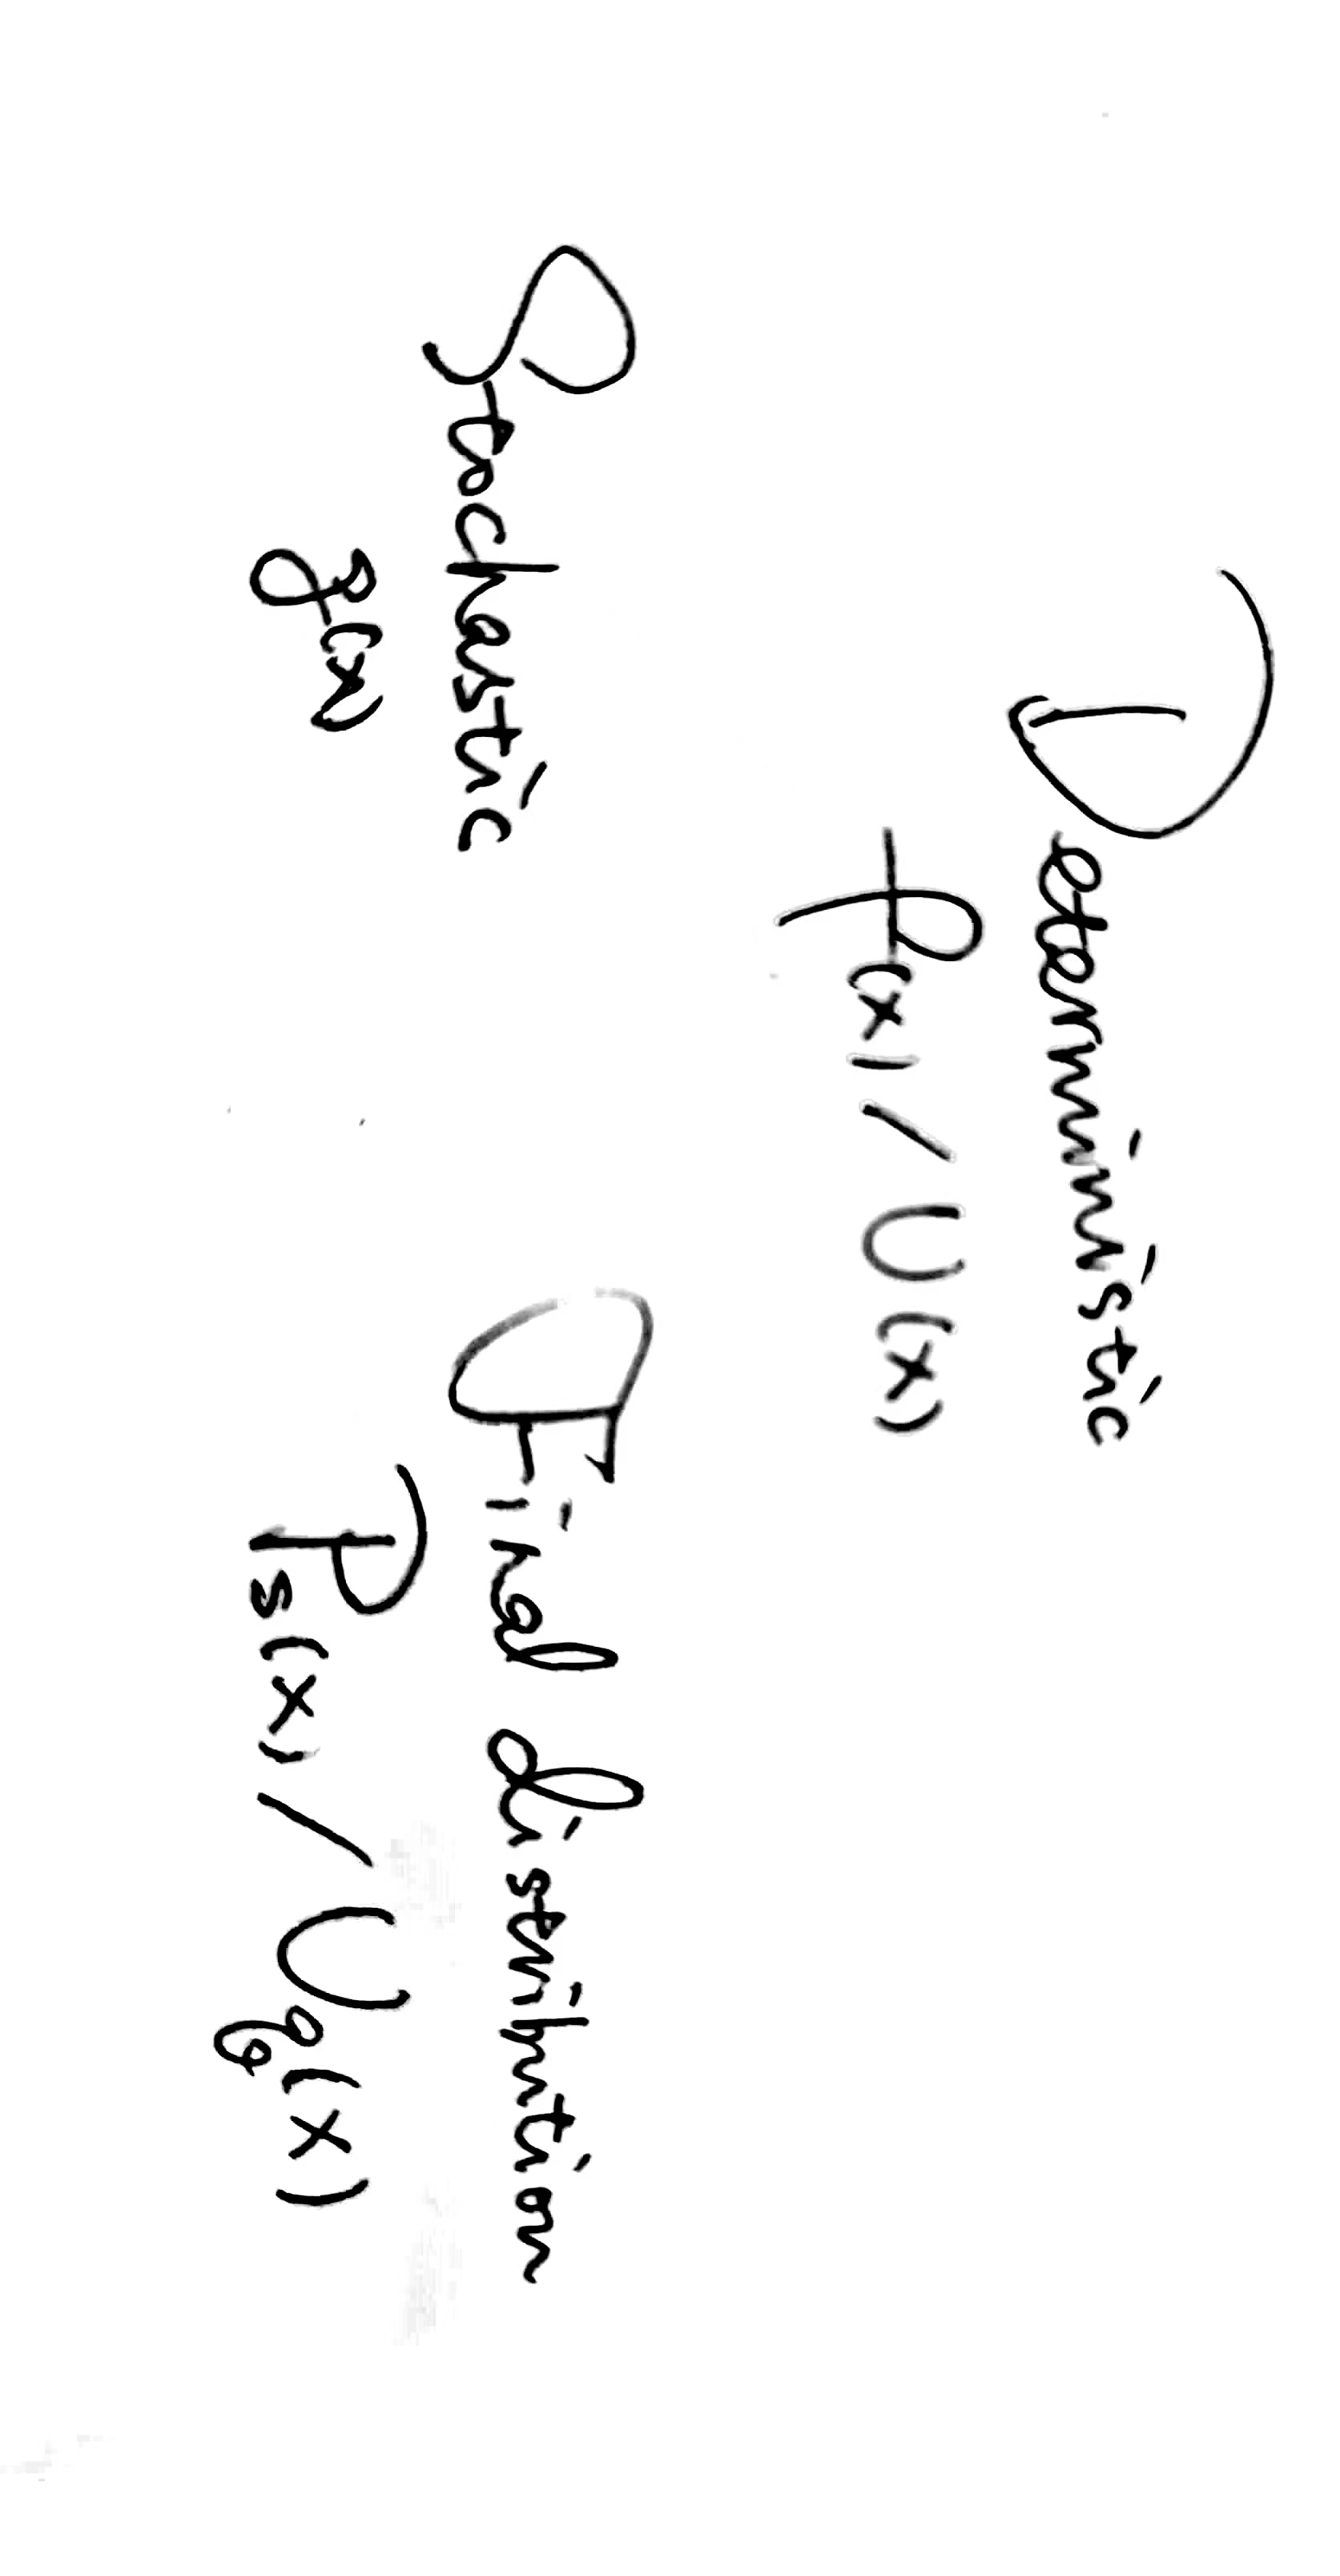 Deterministic
f(x) / U(x)
Stochastic
g(x)
Final distribution
Ps(x) / Uq(x)